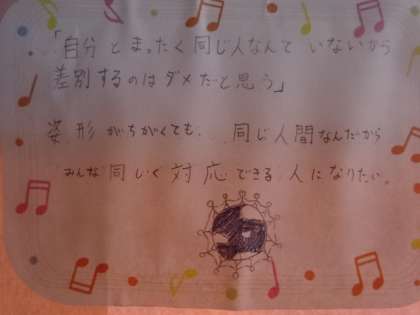 「自分とまったく同じ人なんていないから
差別するのはダメだと思う」
姿、形がちがくても、、同じ人間なんだから
みんな同しく対応できる人になりたい。